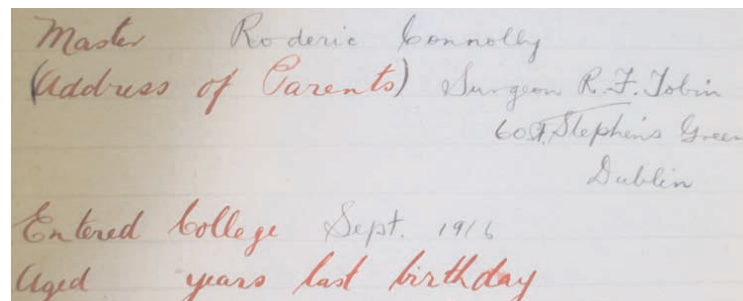 Master Roderic Connolly
(Address of Parents) Surgeon R. F. Tobin
60 St. Stephen's Green
Dublin
Entered College Sept. 1916
Aged years last birthday